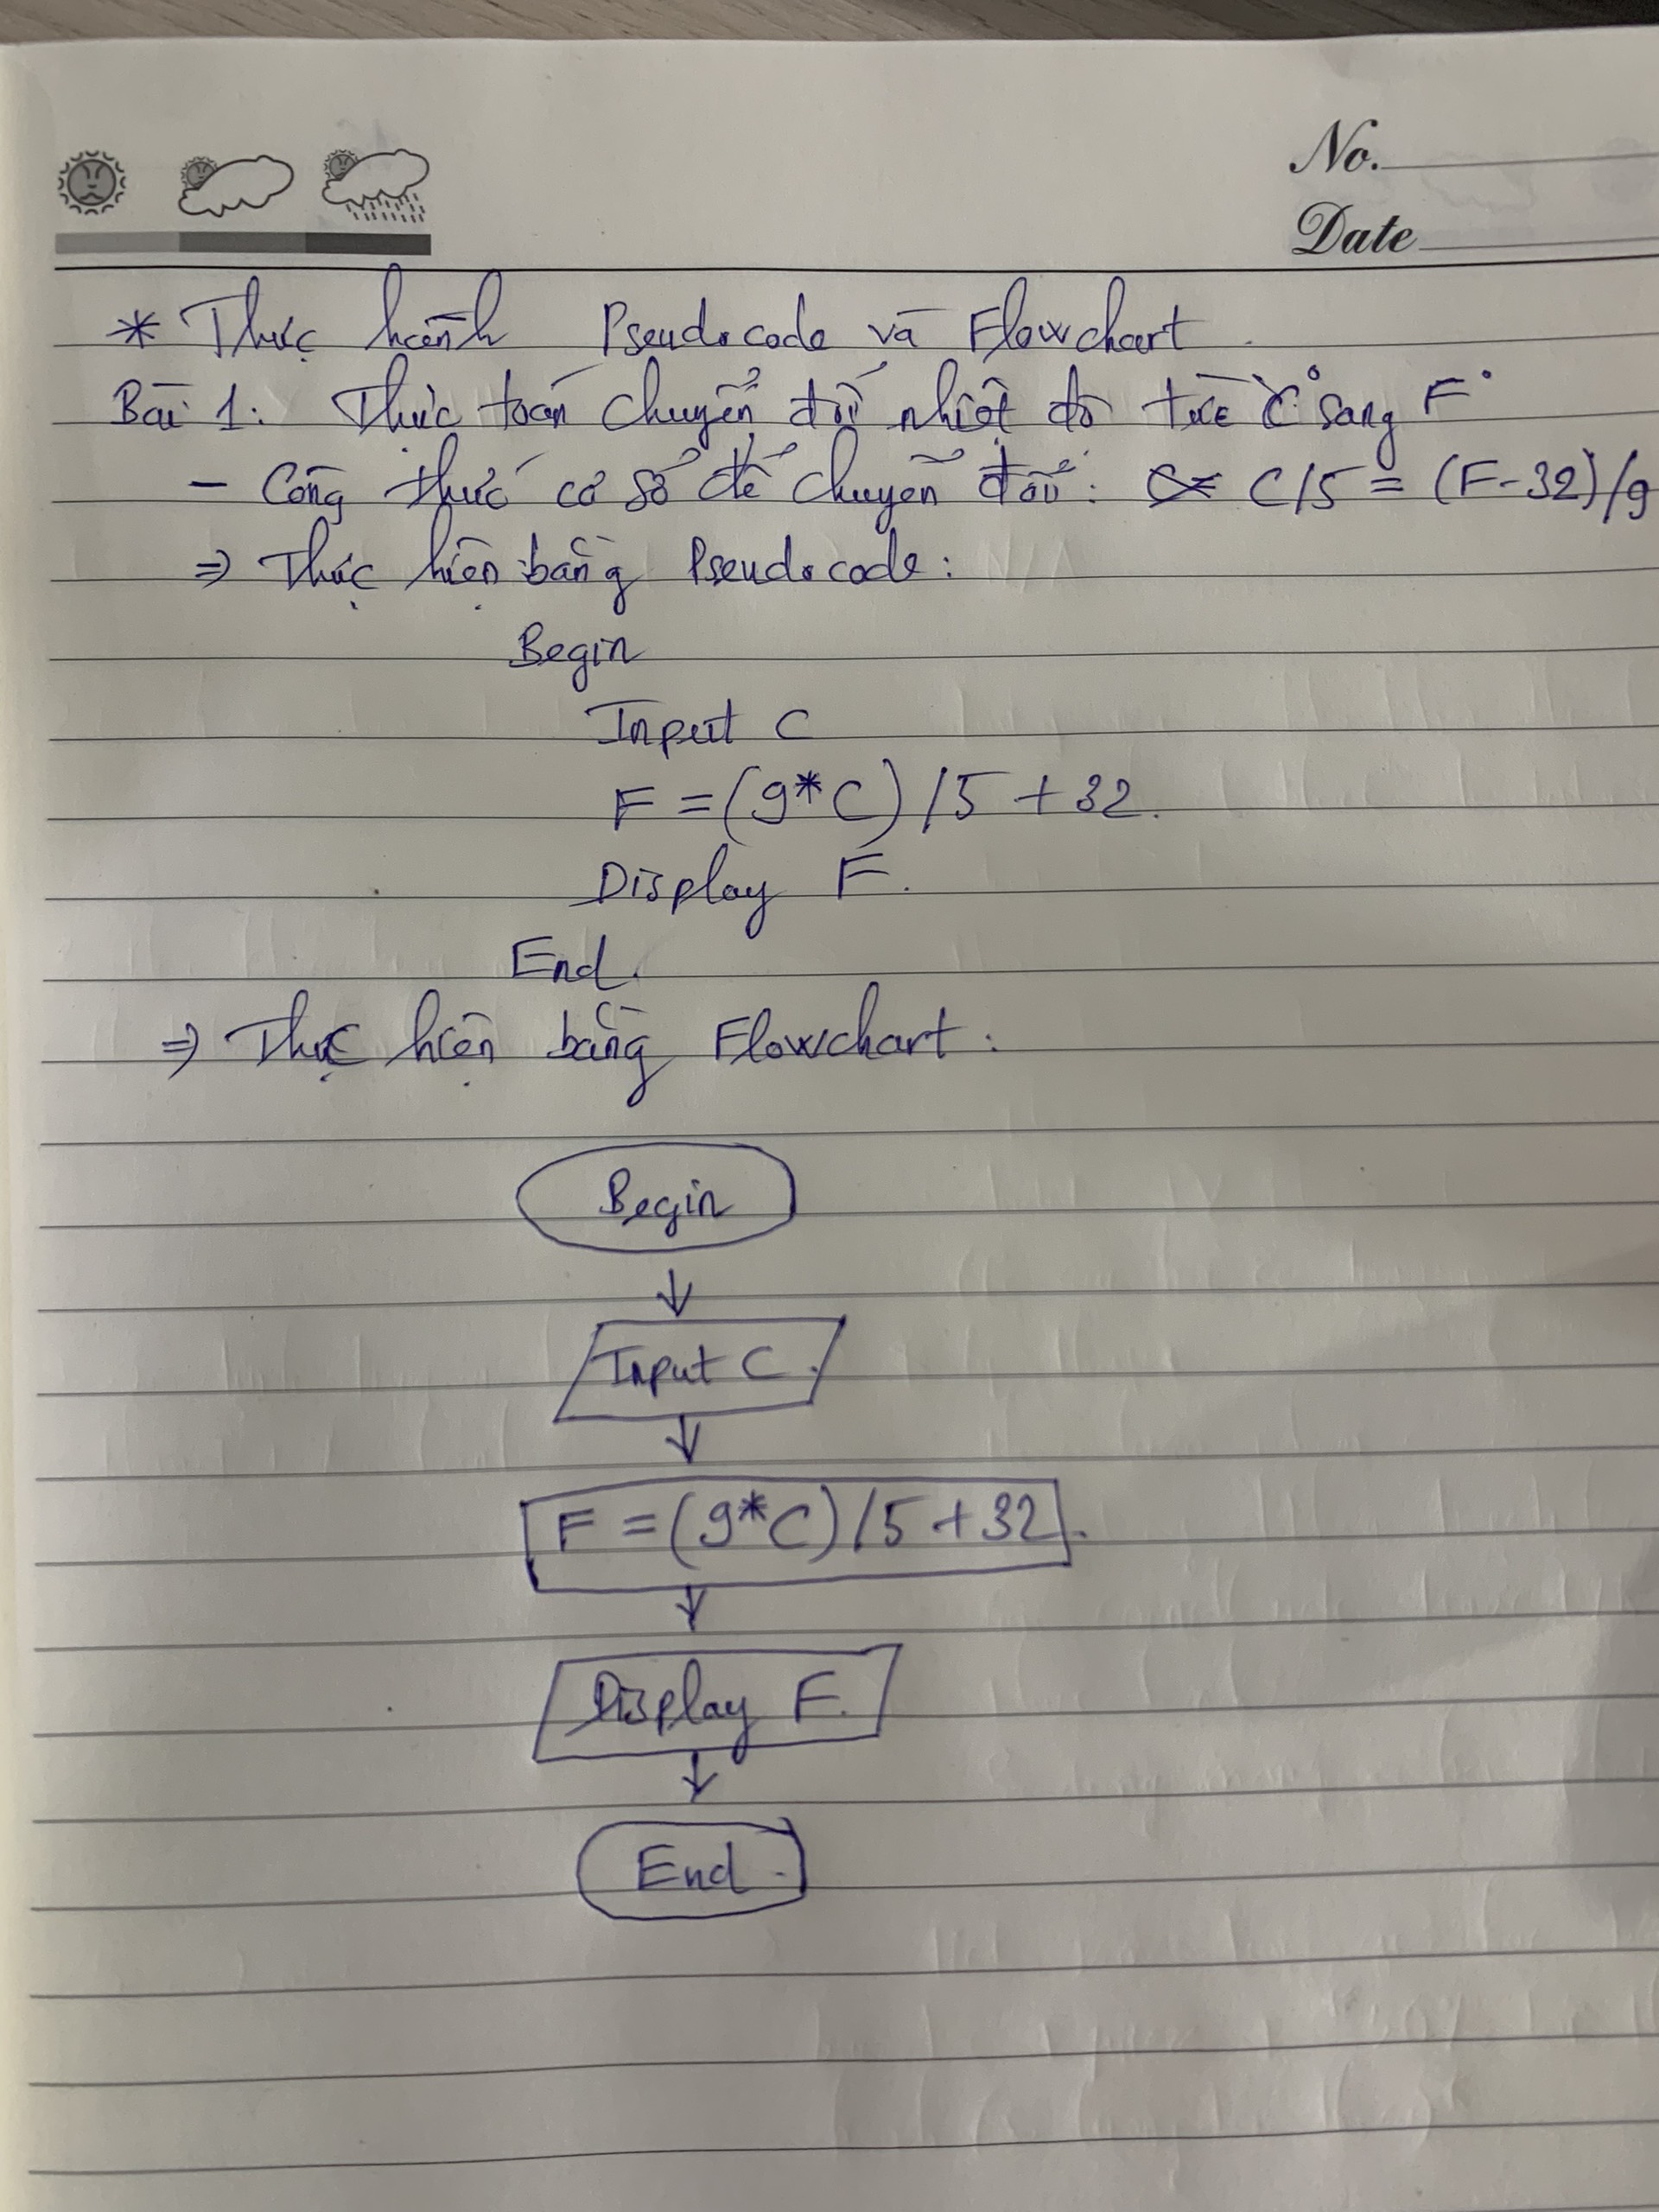 No.
Date
* Thực hành Pseudocode và Flowchart.
Bài 1: Thức toán chuyển đổi nhiệt độ từ C° sang F°
- Công thức cơ sở để chuyển đổi: C/5 = (F-32)/9
⇒ Thực hiện bằng Pseudocode:
Begin
Input C
F = (9*C)/5 + 32.
Display F.
End.
⇒ Thực hiện bằng Flowchart:
Begin
Input C.
F = (9*C)/5 + 32.
Display F.
End.